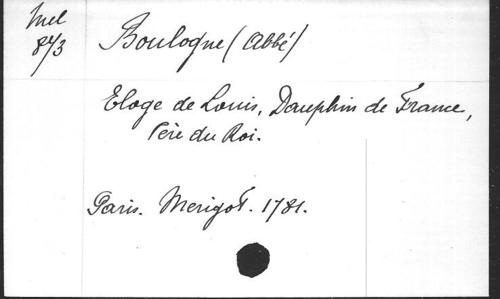 Mel
8º/3
Boulogne (Abbé)
Eloge de Louis, Dauphin de France,
Père du Roi.
Paris. Merigot. 1781.